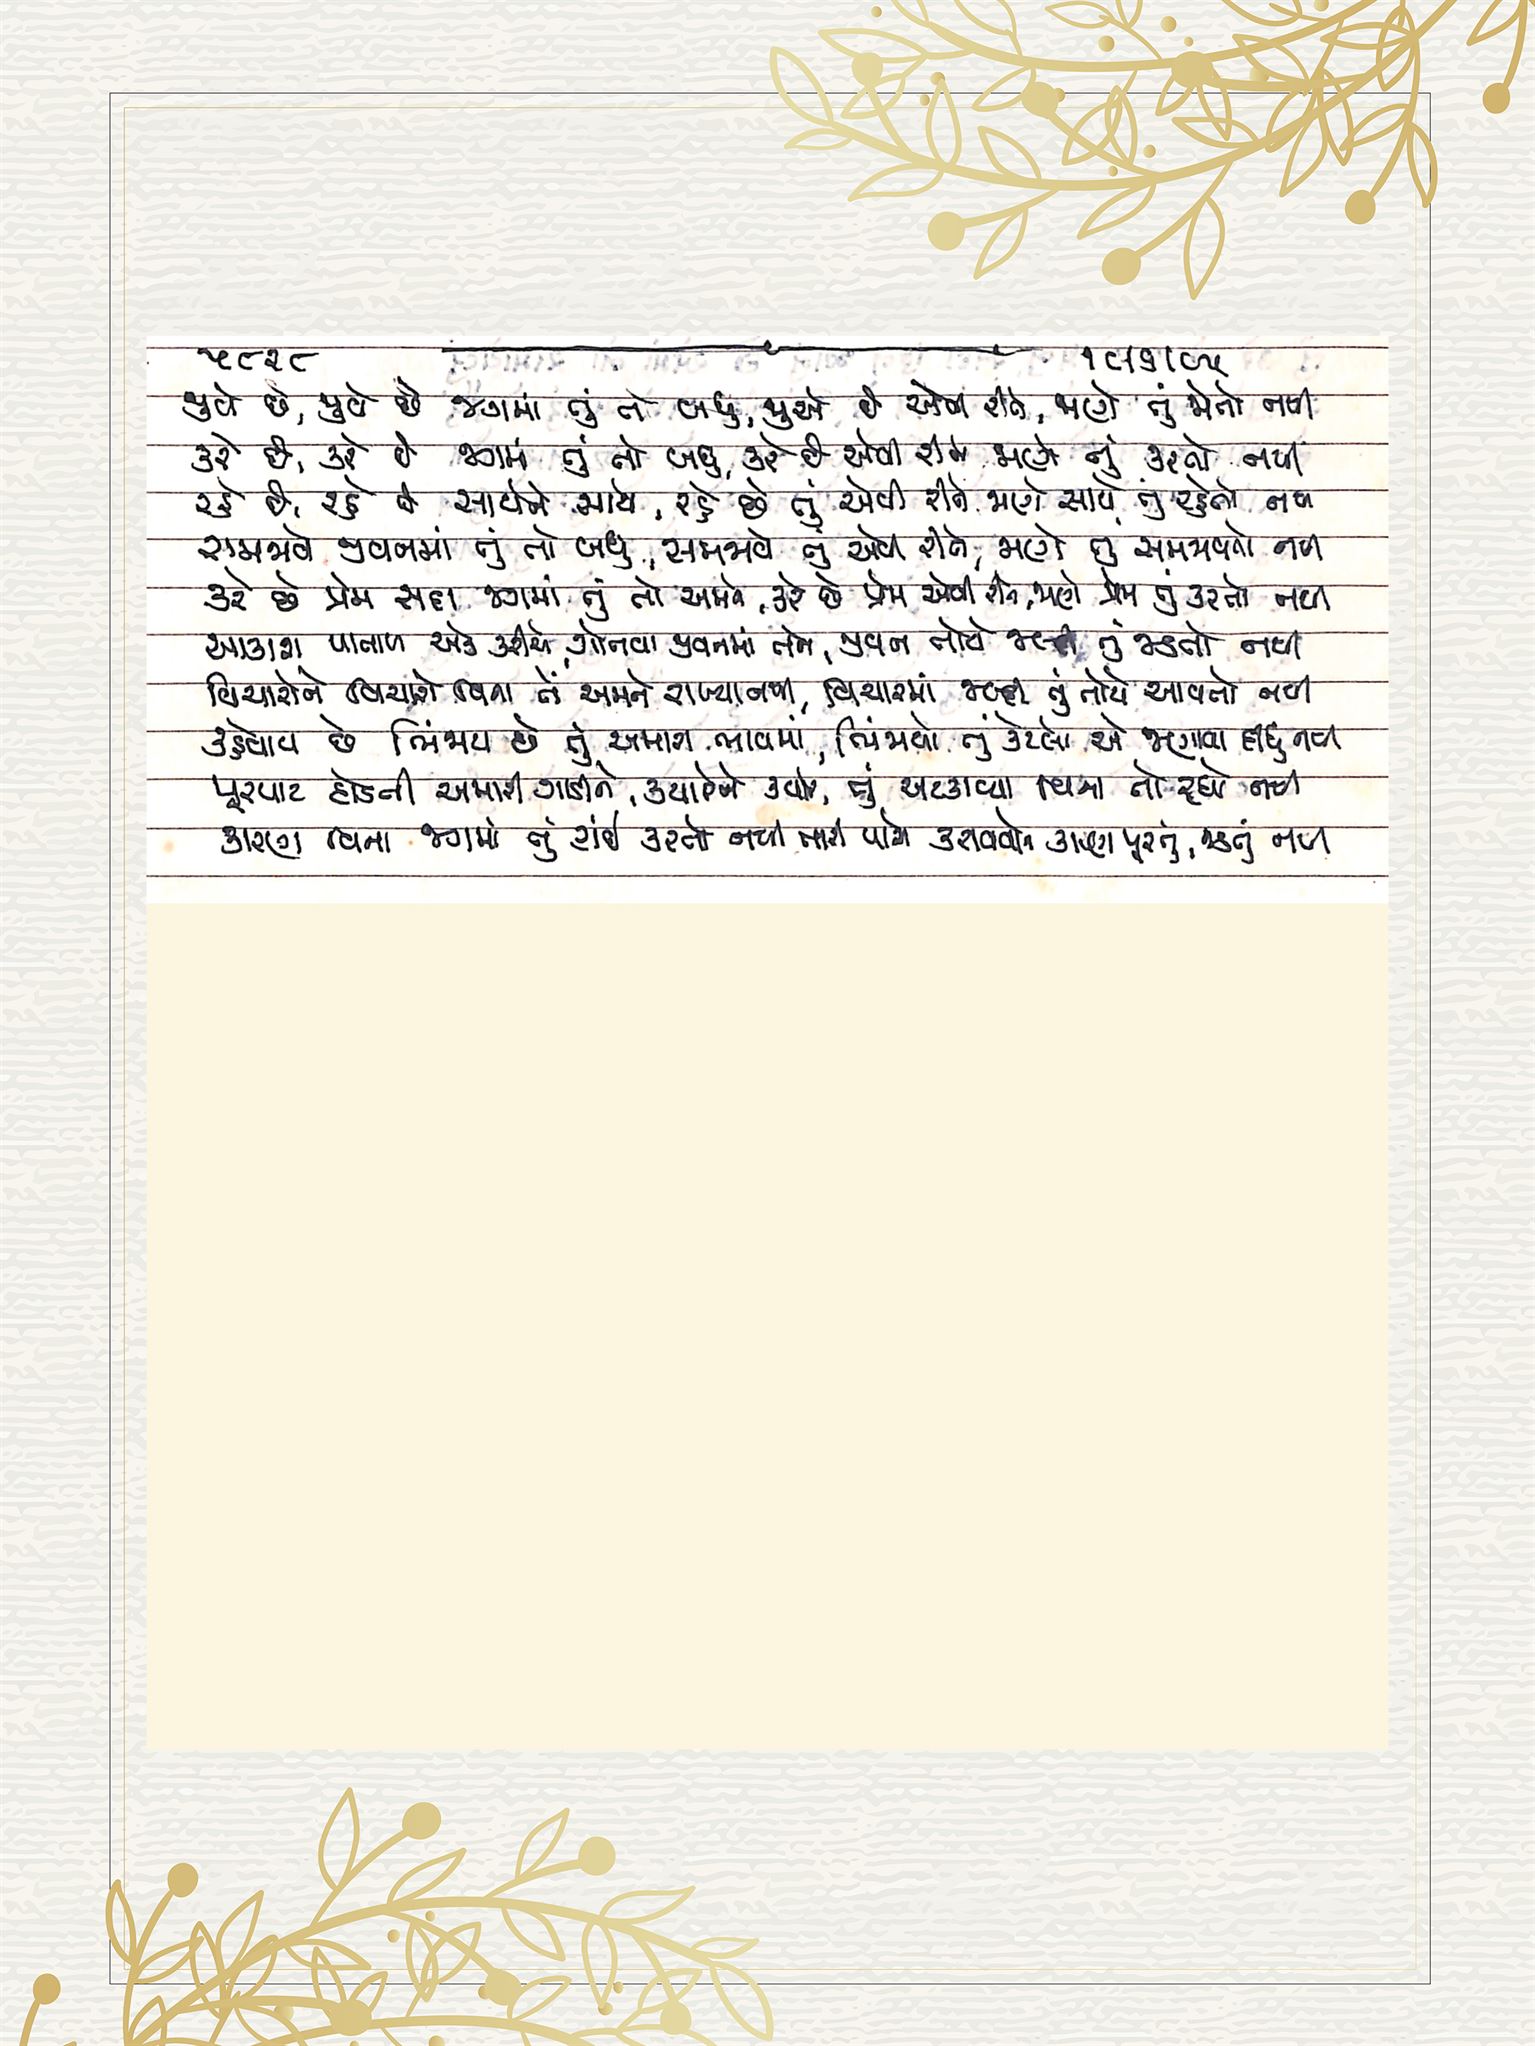 ૫૮૨૮ ૧૮।૭।૯૫
જુવે છે, જુવે છે જગમાં તું તો બધું, જુએ છે એવી રીતે, જાણે તું જોતો નથી
કરે છે, કરે છે જગમાં તું તો બધું, કરે છે એવી રીતે જાણે તું કરતો નથી
રહે છે, રહે છે સાથેને સાથે, રહે છે તું એવી રીતે જાણે સાથે તું રહેતો નથી
સમજાવે જીવનમાં તું તો બધું, સમજાવે તું એવી રીતે, જાણે તું સમજાવતો નથી
કરે છે પ્રેમ સદા જગમાં તું તો અમને, કરે છે પ્રેમ એવી રીતે, જાણે પ્રેમ તું કરતો નથી
આકાશ પાતાળ એક કરીએ, ગોતવા જીવનમાં તને, જીવન તોયે જલ્દી તું જડતો નથી
વિચારોને વિચારો વિના તેં અમને રાખ્યા નથી, વિચારમાં જલ્દી તું તોયે આવતો નથી
કહેવાય છે ભિંજાય છે તું અમારા ભાવમાં, ભિંજાયો તું કેટલો એ જાણવા દીધું નથી
પૂરપાટ દોડતી અમારી ગાડીને, ક્યારેને ક્યારે, તું અટકાવ્યા વિના તો રહ્યો નથી
કારણ વિના જગમાં તું કાંઈ કરતો નથી તારી પાસે કરાવવાનું કારણ પૂરતું, જડતું નથી